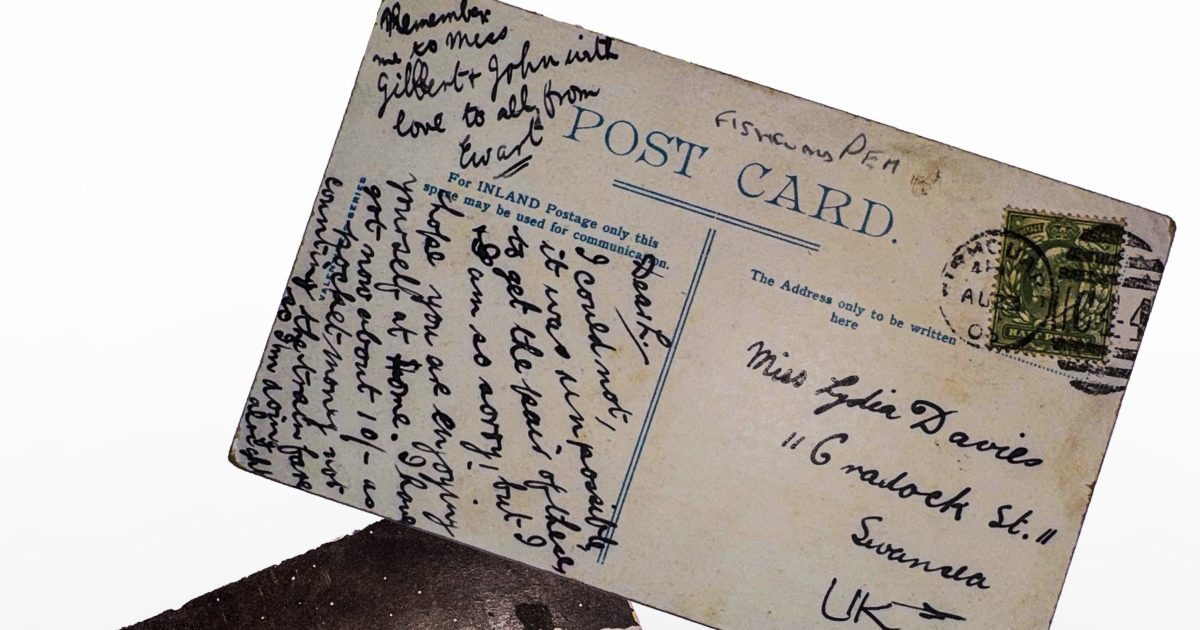 Remember
me to Miss
Gilbert + John with
love to all, from
Ewart
POST CARD.
PEM
For INLAND Postage only this
space may be used for communication.
SERIES
Dear L,
I could not,
it was unpossible
to get the pair of these
+ I am so sorry! but I
hope you are enjoying
yourself at Home. I have
got now about 10/- as
pocket-money not
counting the train fare
so I'm doing
alright
The Address only to be written
here
POSTAGE
AU
Miss Lydia Davies
"Cradock St."
Swansea
UK